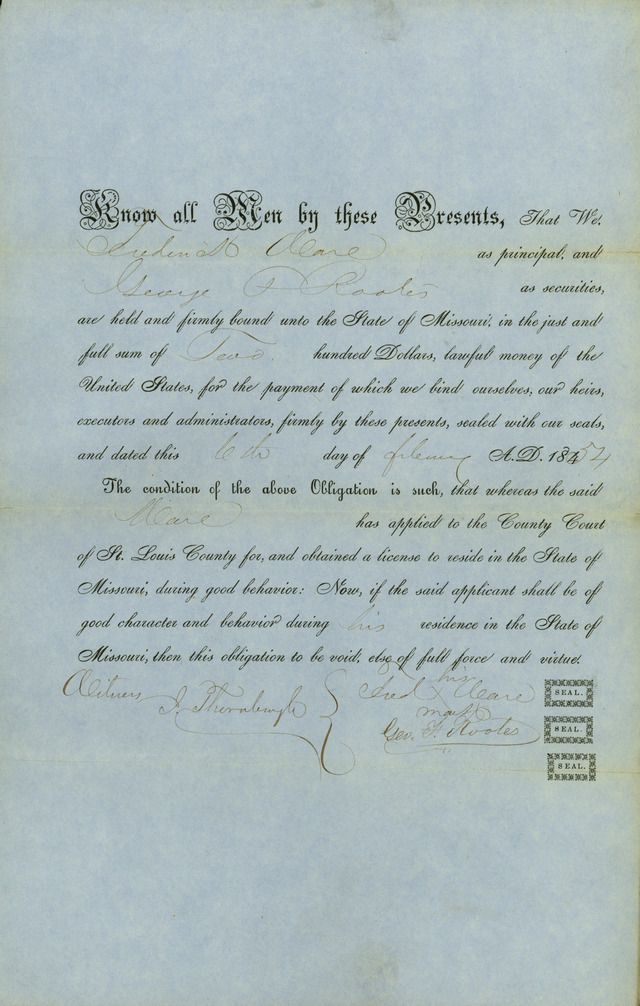 Know all Men by these Presents, That We,
Frederick Ware as principal, and
George F Rootes as securities,
are held and firmly bound unto the State of Missouri, in the just and
full sum of Two hundred Dollars, lawful money of the
United States, for the payment of which we bind ourselves, our heirs,
executors and administrators, firmly by these presents, sealed with our seals,
and dated this 6th day of A.D. 1854
The condition of the above Obligation is such, that whereas the said
Ware has applied to the County Court
of St. Louis County for, and obtained a license to reside in the State of
Missouri, during good behavior: Now, if the said applicant shall be of
good character and behavior during his residence in the State of
Missouri, then this obligation to be void, else of full force and virtue.
Witness his
J. Thornburgh Fred x Ware SEAL.
mark
Geo. F. Rootes SEAL.
SEAL.